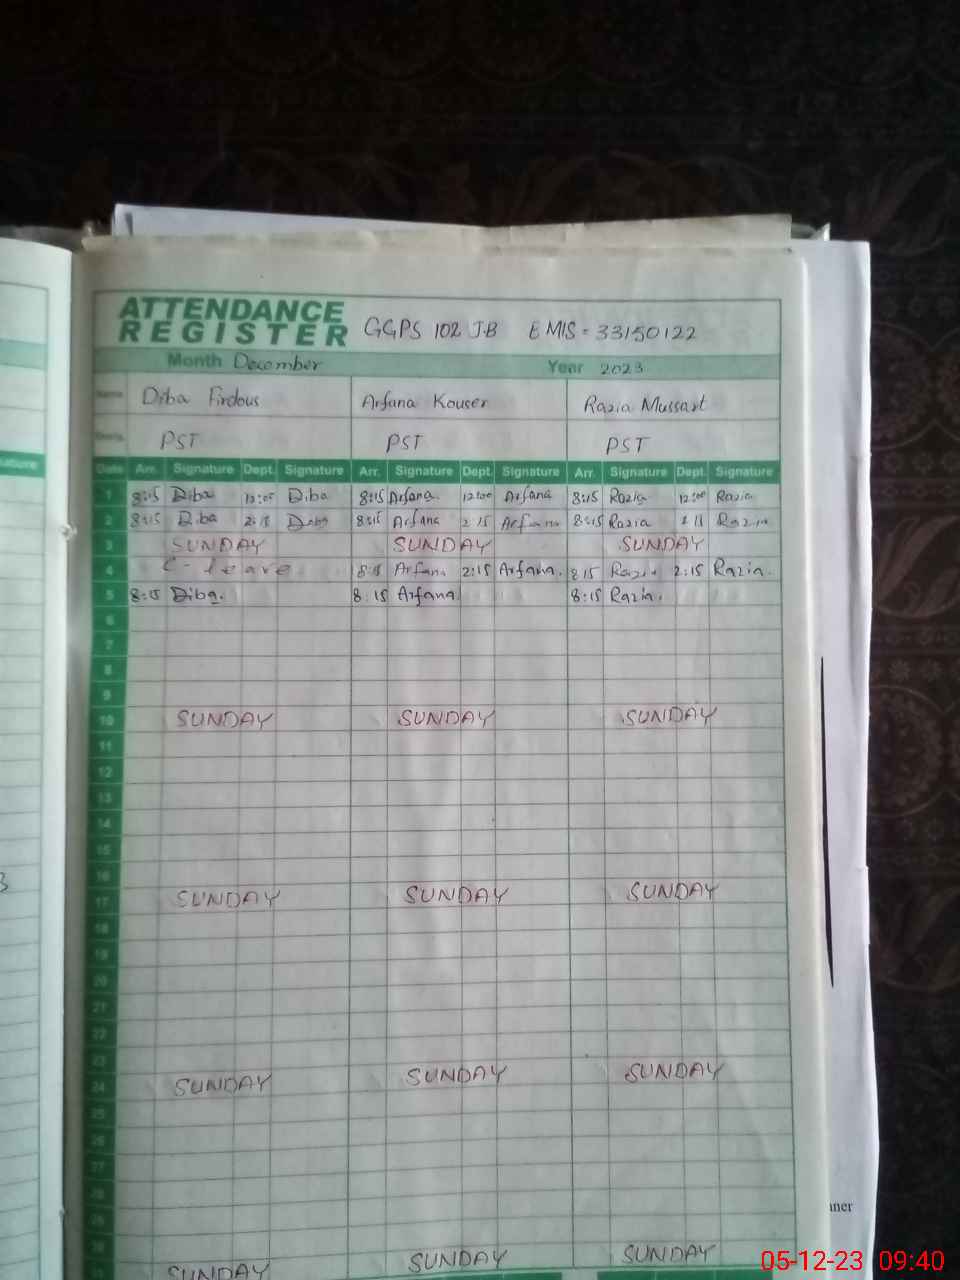 ATTENDANCE
REGISTER GGPS 102 JB EMIS = 33150122
Month December Year 2023
Name Diba Firdous Arfana Kouser Razia Mussart
PST PST PST
Date Arr. Signature Dept. Signature Arr. Signature Dept. Signature Arr. Signature Dept. Signature
1 8:15 Diba 12:00 Diba 8:15 Arfana. 12:00 Arfana 8:15 Razia 12:00 Razia
2 8:15 Diba 2:15 Diba 8:15 Arfana 2:15 Arfana 8:15 Razia 2:15 Razia
3 SUNDAY SUNDAY SUNDAY
4 C-leave 8:15 Arfana 2:15 Arfana. 8:15 Razia 2:15 Razia.
5 8:15 Diba. 8:15 Arfana. 8:15 Razia.
6
7
8
9
10 SUNDAY SUNDAY SUNDAY
11
12
13
14
15
16
17 SUNDAY SUNDAY SUNDAY
18
19
20
21
22
23
24 SUNDAY SUNDAY SUNDAY
25
26
27
28
29
30
SUNDAY SUNDAY SUNDAY
ature
3
nner
05-12-23 09:40